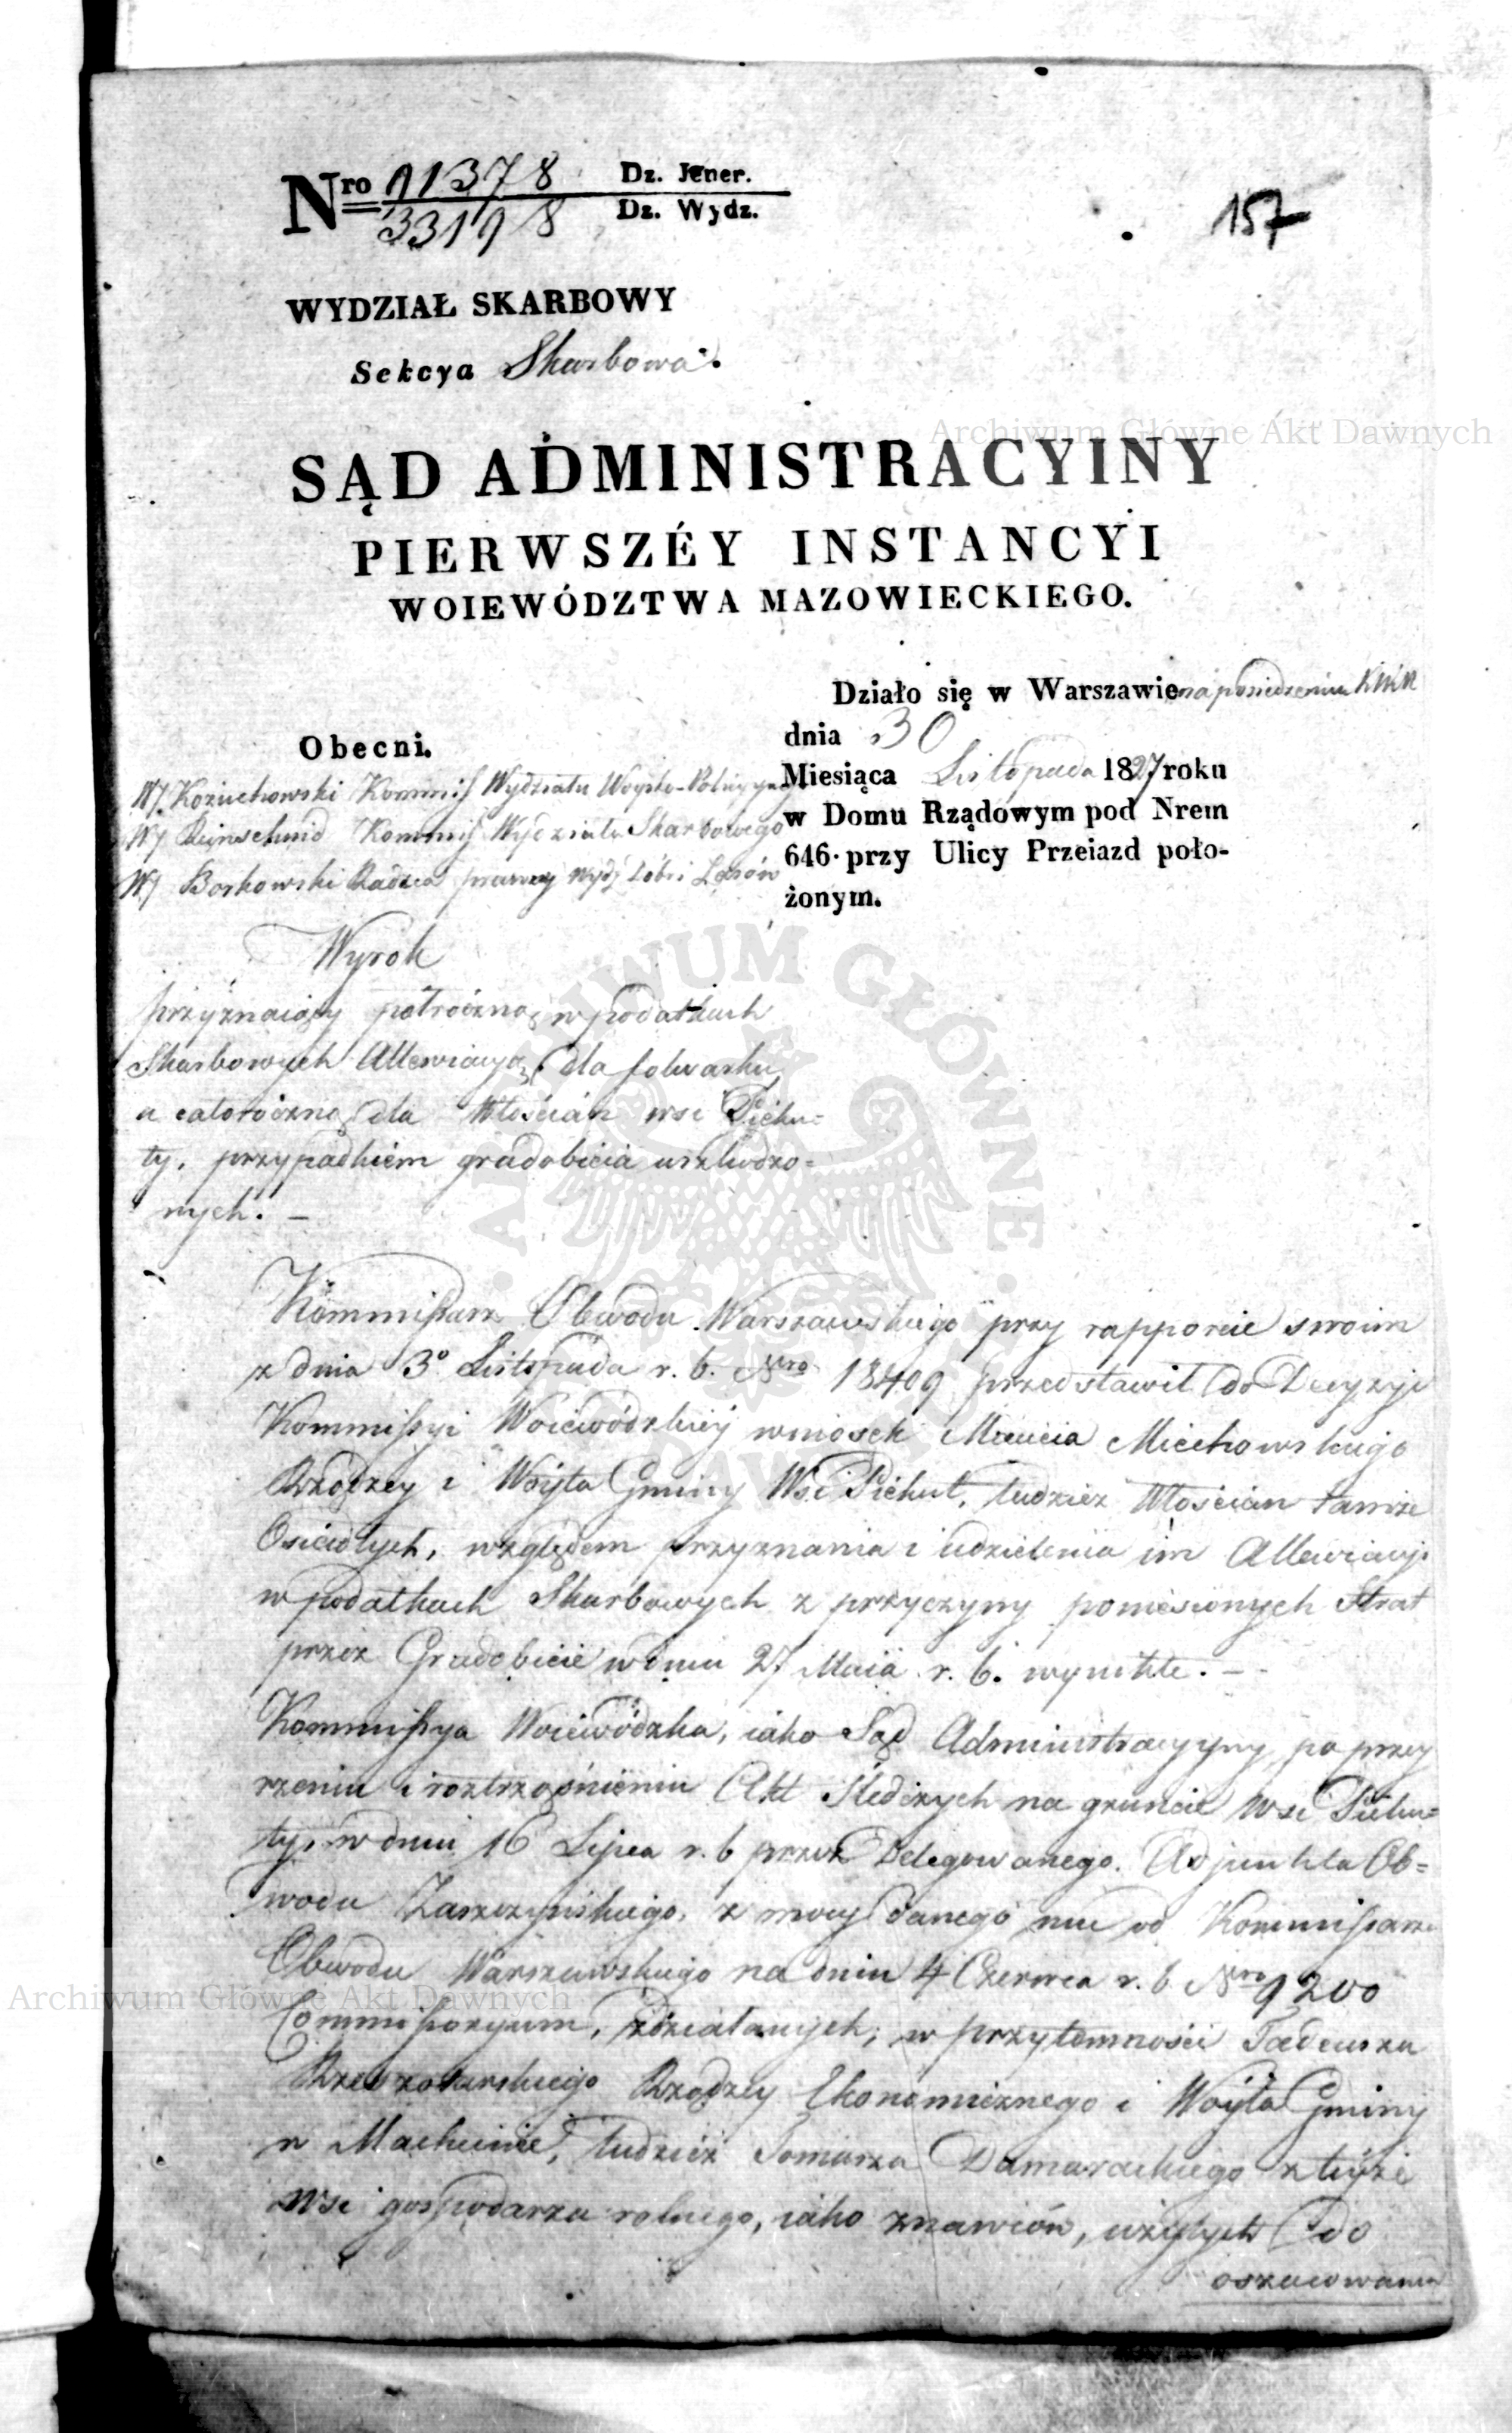 Nro 11378 Dz. Jener.
33198 Dz. Wydz.
157
WYDZIAŁ SKARBOWY
Sekcya Skarbowa.
Archiwum Główne Akt Dawnych
SĄD ADMINISTRACYINY
PIERWSZÉY INSTANCYI
WOIEWÓDZTWA MAZOWIECKIEGO.
Działo się w Warszawie na posiedzeniu
dnia 30
Miesiąca Listopada 1827 roku
w Domu Rządowym pod Nrem
646. przy Ulicy Przeiazd poło-
żonym.
Obecni.
W. Kożuchowski Kommiss Wydziału Woysko-Policyynego
W. Reinschmid Kommiss Wydziału Skarbowego
W. Borkowski Radzca prawny Wydz Dóbr i Lasów
Wyrok
przyznaiący półroczną w podatkach
Skarbowych Allewiacyą, dla folwarku
a całoroczną dla Włościan wsi Piechu-
ty, przypadkiem gradobicia uszkodzo-
nych. —
Kommissarz Obwodu Warszawskiego przy rapporcie swoim
z dnia 3o Listopada r. b. Nro 18409 przedstawił do Decyzyi
Kommissyi Woiewódzkiéy wniosek Miechowskiego
Rządzcy i Wóyta Gminy Wsi Piechut, tudzież Włościan tamże
Osiadłych, względem przyznania i udzielenia im Allewiacyi
w podatkach Skarbowych z przyczyny poniesionych Strat
przez Gradobicie w dniu 27 Maia r. b. wynikłe. —
Kommissya Woiewódzka, iako Sąd Administracyyny, po przey
rzeniu i roztrząśnieniu Akt Śledczych na gruncie wsi Piechu-
ty, w dniu 16 Lipca r. b przez Delegowanego Adjunkta Ob-
wodu Zaszczyńskiego, z mocy danego mu od Kommissarza
Obwodu Warszawskiego na dniu 4 Czerwca r. b. Nro 9200
Commissoryum, zdziałanych, w przytomności Tadeusza
Rządzcy Ekonomicznego i Wóyta Gminy
w Machcinie, tudzież Tomasza Damarackiego z teyże
wsi gospodarza rolnego, iako znawców, użytych do
oszacowania
Archiwum Główne Akt Dawnych
ARCHIWUM GŁÓWNE AKT DAWNYCH